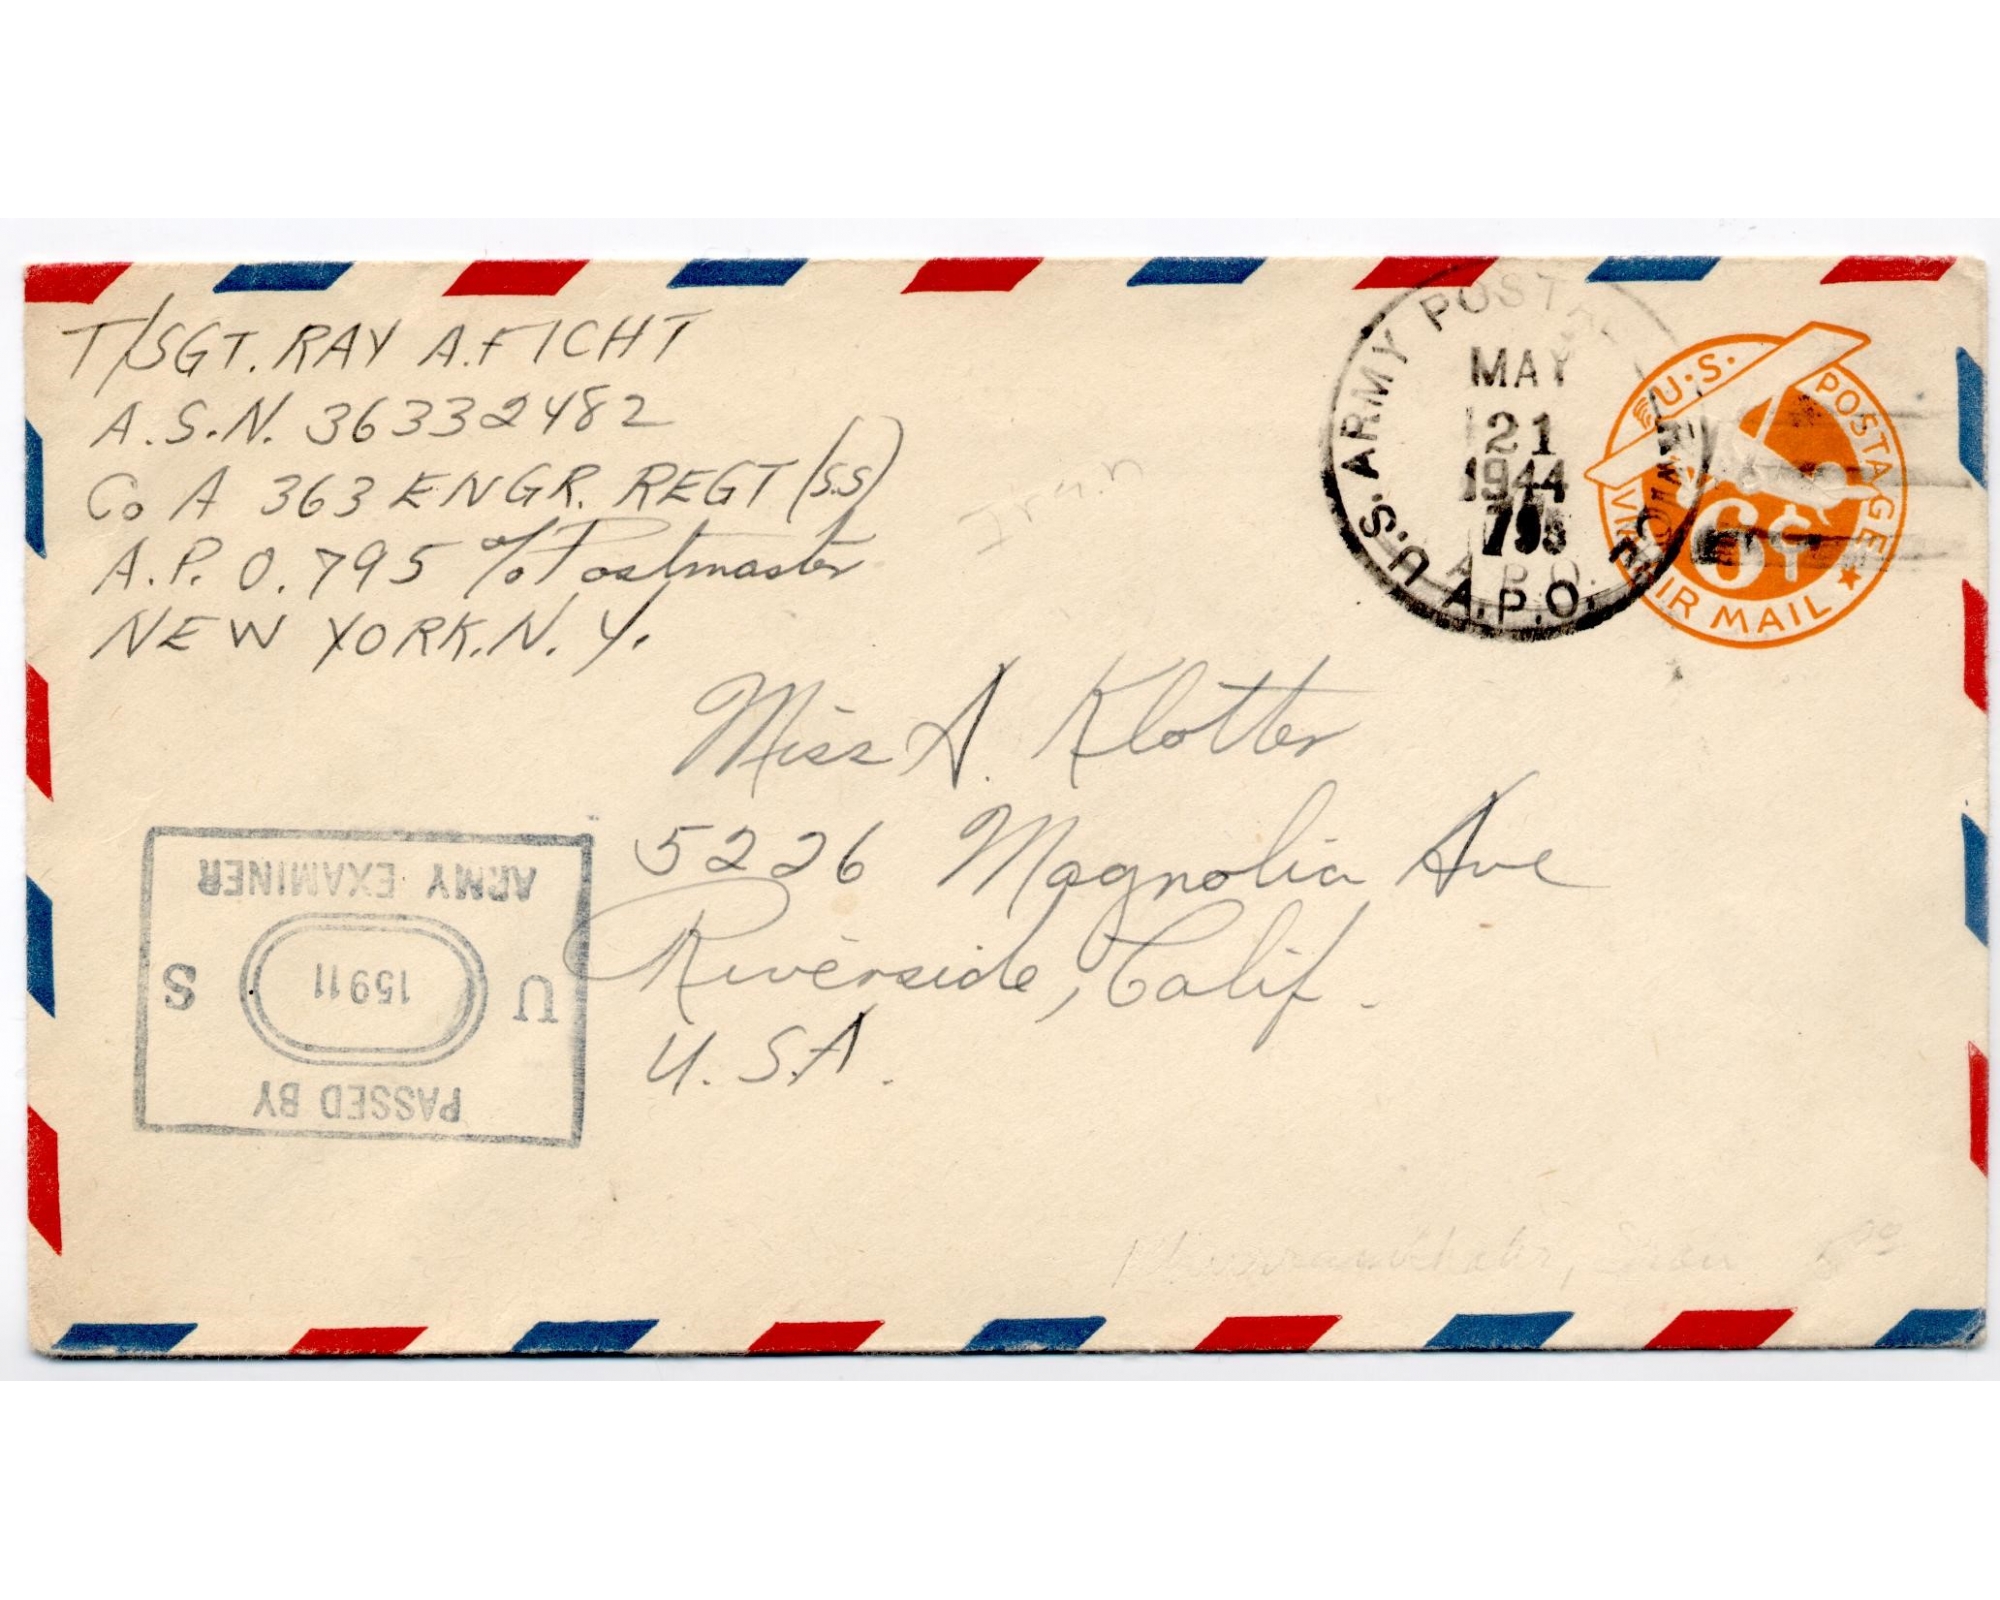 T/SGT. RAY A. FICHT
A.S.N. 36332482
Co A 363 ENGR. REGT (S.S)
A.P.O. 795 c/o Postmaster
NEW YORK. N. Y.
Iran
U.S. ARMY POSTAL
MAY
21
1944
A.P.O.
U.S. POSTAGE
6¢
VIA AIR MAIL
Miss A. Klotter
5226 Magnolia Ave
Riverside, Calif.
U.S.A.
PASSED BY
U 15911 S
ARMY EXAMINER
Iran